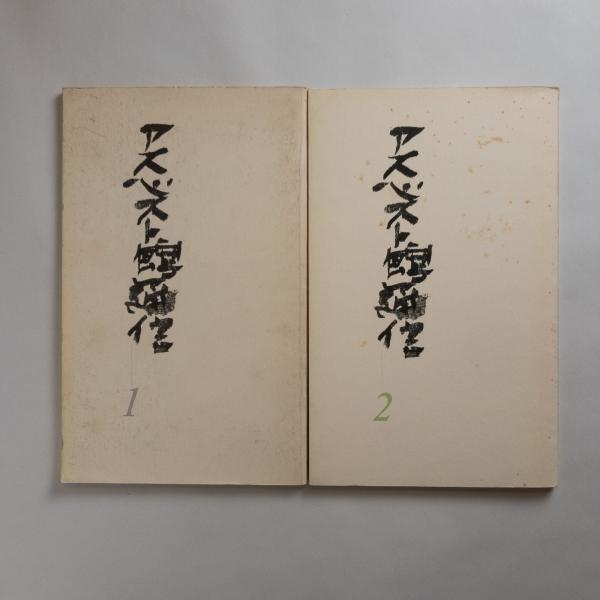 アスベスト館通信
1
アスベスト館通信
2